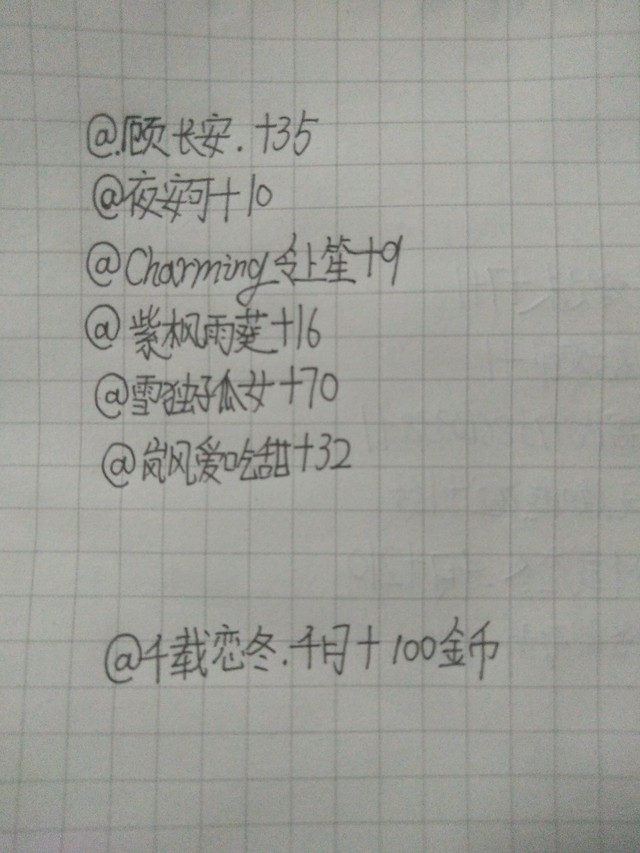 @顾长安.+35
@夜安可+10
@Charming 令上笙+9
@紫枫雨薆+16
@雪独孑瓜女+70
@岚风爱吃甜+32
@千载恋冬.千月+100金币